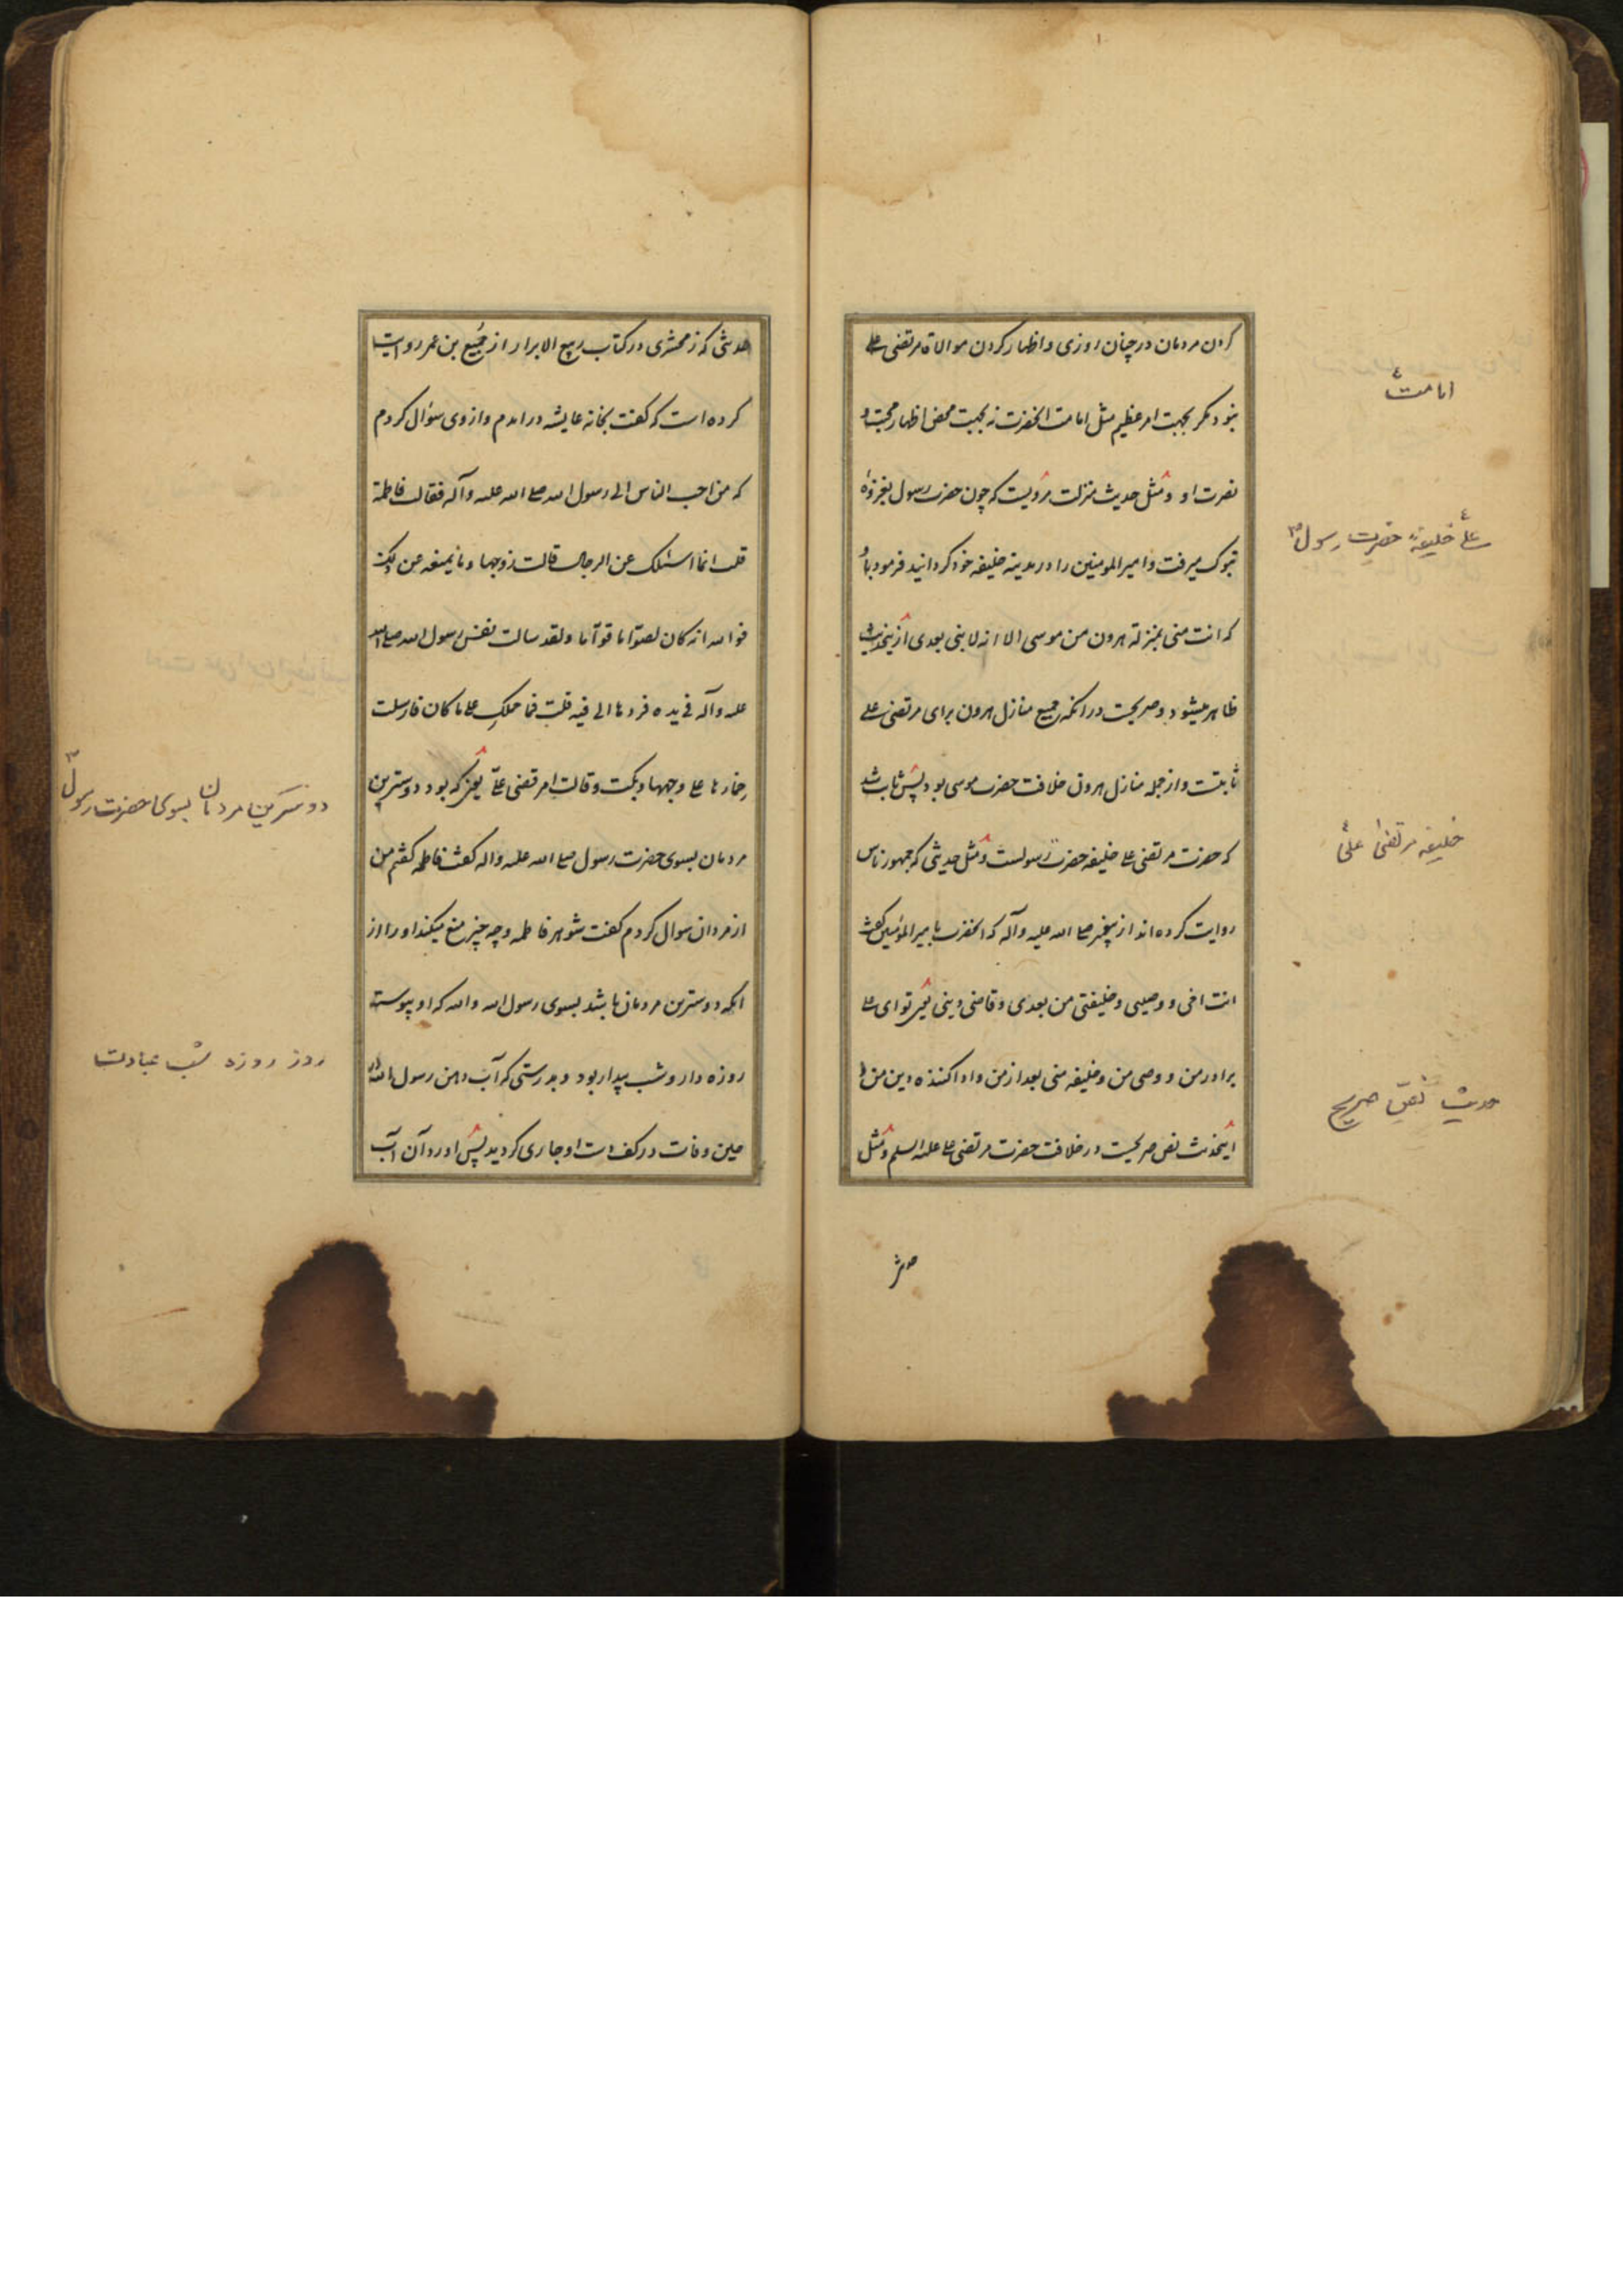 کردن مردمان در چنان روزی و اظهار کردن موالاة مرتضی علی
نبود مکر بجهت امر عظیم مثل امامت انحضرت نه بجهت محض اظهار محبت و
نصرت او و مثل حدیث منزلت مرویست که چون حضرت رسول بغزوهٔ
تبوک میرفت و امیرالمومنین را در مدینه خلیفه خود کردانید فرمود باو
که انت منی بمنزلة هرون من موسی الا انه لا نبی بعدی ازینحدیث
ظاهر میشود و صریحست در انکه جمیع منازل هرون برای مرتضی علی
ثابتست و از جمله منازل هرون خلافت حضرت موسی بود پس ثابت شد
که حضرت مرتضی علی خلیفه حضرت رسولست و مثل حدیثی که جمهور ناس
روایت کرده اند از پیغمبر صلی الله علیه وآله که انحضرت با میرالمؤمنین کفت
انت اخی و وصیی و خلیفتی من بعدی و قاضی دینی یعنی تو ای علی
برادر من و وصی من و خلیفه منی بعد از من و ادا کننده دین من
اینحدیث نص صریحست در خلافت حضرت مرتضی علی علیه السلم و مثل
امامت
علی خلیفهٔ حضرت رسول
خلیفه مرتضی علی
حدیث نص صریح
حدیثی که زمخشری در کتاب ربیع الابرار از جمیع بن عمر روایت
کرده است که کفت بخانه عایشه درامدم و از وی سؤال کردم
که من احب الناس الی رسول الله صلی الله علیه وآله فقالت فاطمة
قلت انما اسئلک عن الرجال قالت زوجها و ما یمنعه عن ذلک
فوالله انه کان لصوّاما قوّاما ولقد سالت نفس رسول الله صلی الله
علیه وآله فی یده فردها الی فیه قلت فما حملکِ علی ما کان فارسلت
خمارها علی وجهها و بکت و قالت امر قضی علیّ یعنی که بود دوسترین
مردمان بسوی حضرت رسول صلی الله علیه واله کفت فاطمه کفتم من
از مردان سوال کردم کفت شوهر فاطمه و چه چیز منع میکند او را از
انکه دوسترین مردمان باشد بسوی رسول الله والله که او پیوسته
روزه دار و شب بیدار بود و بدرستی که آب دهن رسول الله
حین وفات در کف دست او جاری کردید پس اورد آن آب
دوسترین مردمان بسوی حضرت رسول
روز روزه شب عبادت